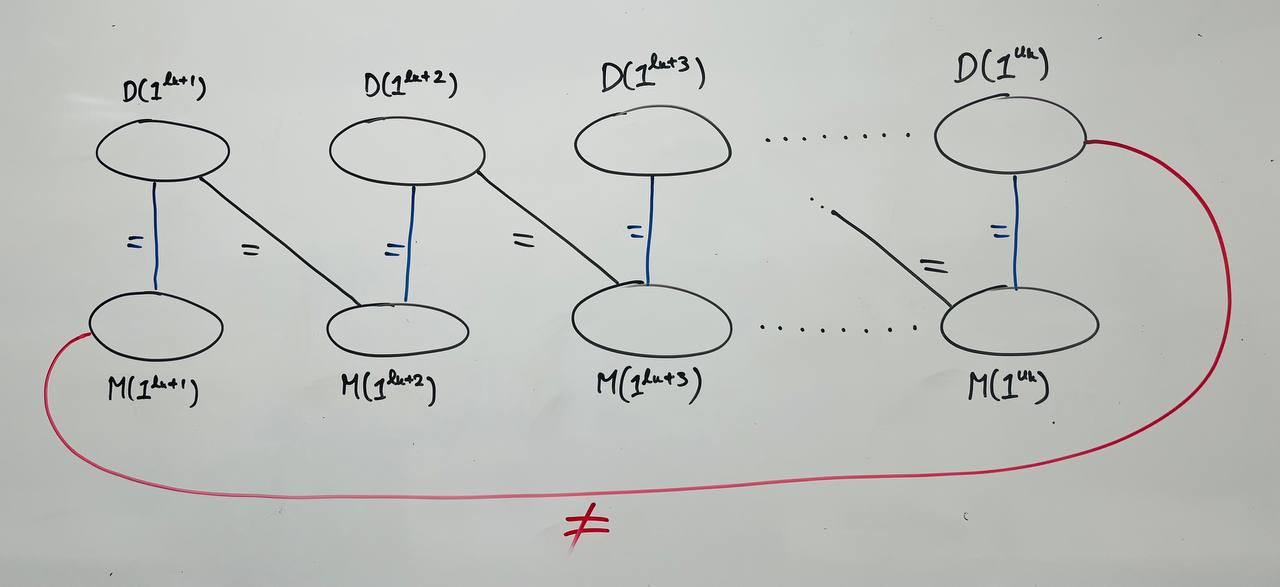 D(1^{lₖ+1}) D(1^{lₖ+2}) D(1^{lₖ+3}) ........ D(1^{uₖ})
= = = = = = =
M(1^{lₖ+1}) M(1^{lₖ+2}) M(1^{lₖ+3}) ........ M(1^{uₖ})
≠